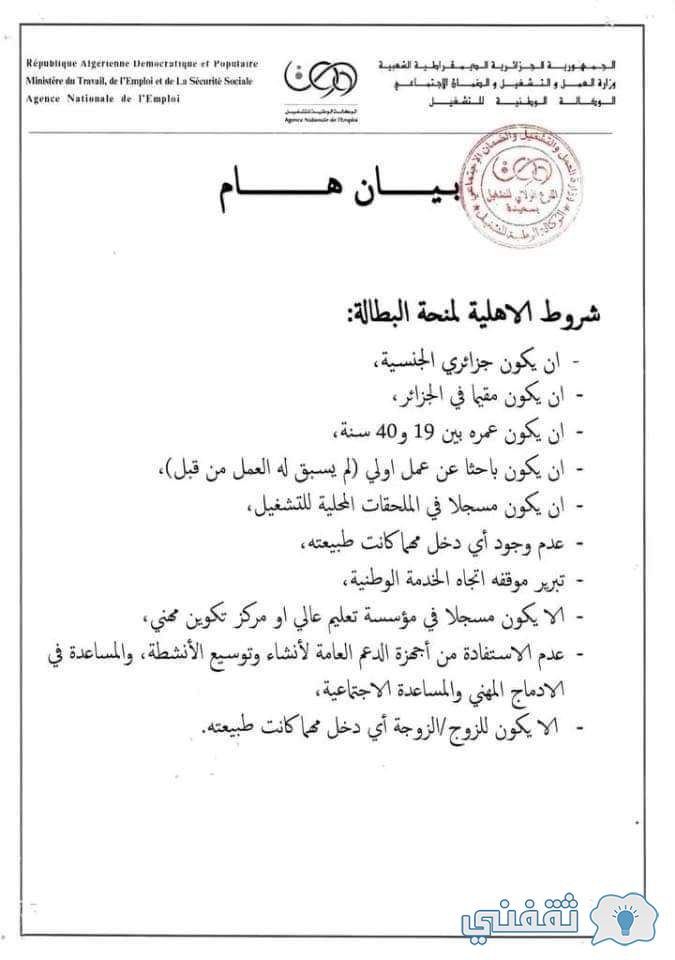 République Algérienne Démocratique et Populaire
Ministère du Travail, de l'Emploi et de La Sécurité Sociale
Agence Nationale de l'Emploi
الوكالة الوطنية للتشغيل
Agence Nationale de l'Emploi
الجمهورية الجزائرية الديمقراطية الشعبية
وزارة العمل و التشغيل و الضمان الإجتماعي
الوكالة الوطنية للتشغيل
وزارة العمل والتشغيل والضمان الاجتماعي
الفرع الولائي للتشغيل
بسعيدة
الوكالة الوطنية للتشغيل
بيـــان هـــام
شروط الاهلية لمنحة البطالة:
- ان يكون جزائري الجنسية،
- ان يكون مقيما في الجزائر،
- ان يكون عمره بين 19 و40 سنة،
- ان يكون باحثا عن عمل اولي (لم يسبق له العمل من قبل)،
- ان يكون مسجلا في الملحقات المحلية للتشغيل،
- عدم وجود أي دخل مهما كانت طبيعته،
- تبرير موقفه اتجاه الخدمة الوطنية،
- الا يكون مسجلا في مؤسسة تعليم عالي او مركز تكوين مهني،
- عدم الاستفادة من أجهزة الدعم العامة لأنشاء وتوسيع الأنشطة، والمساعدة في
الادماج المهني والمساعدة الاجتماعية،
- الا يكون للزوج/الزوجة أي دخل مهما كانت طبيعته.
ثقفني